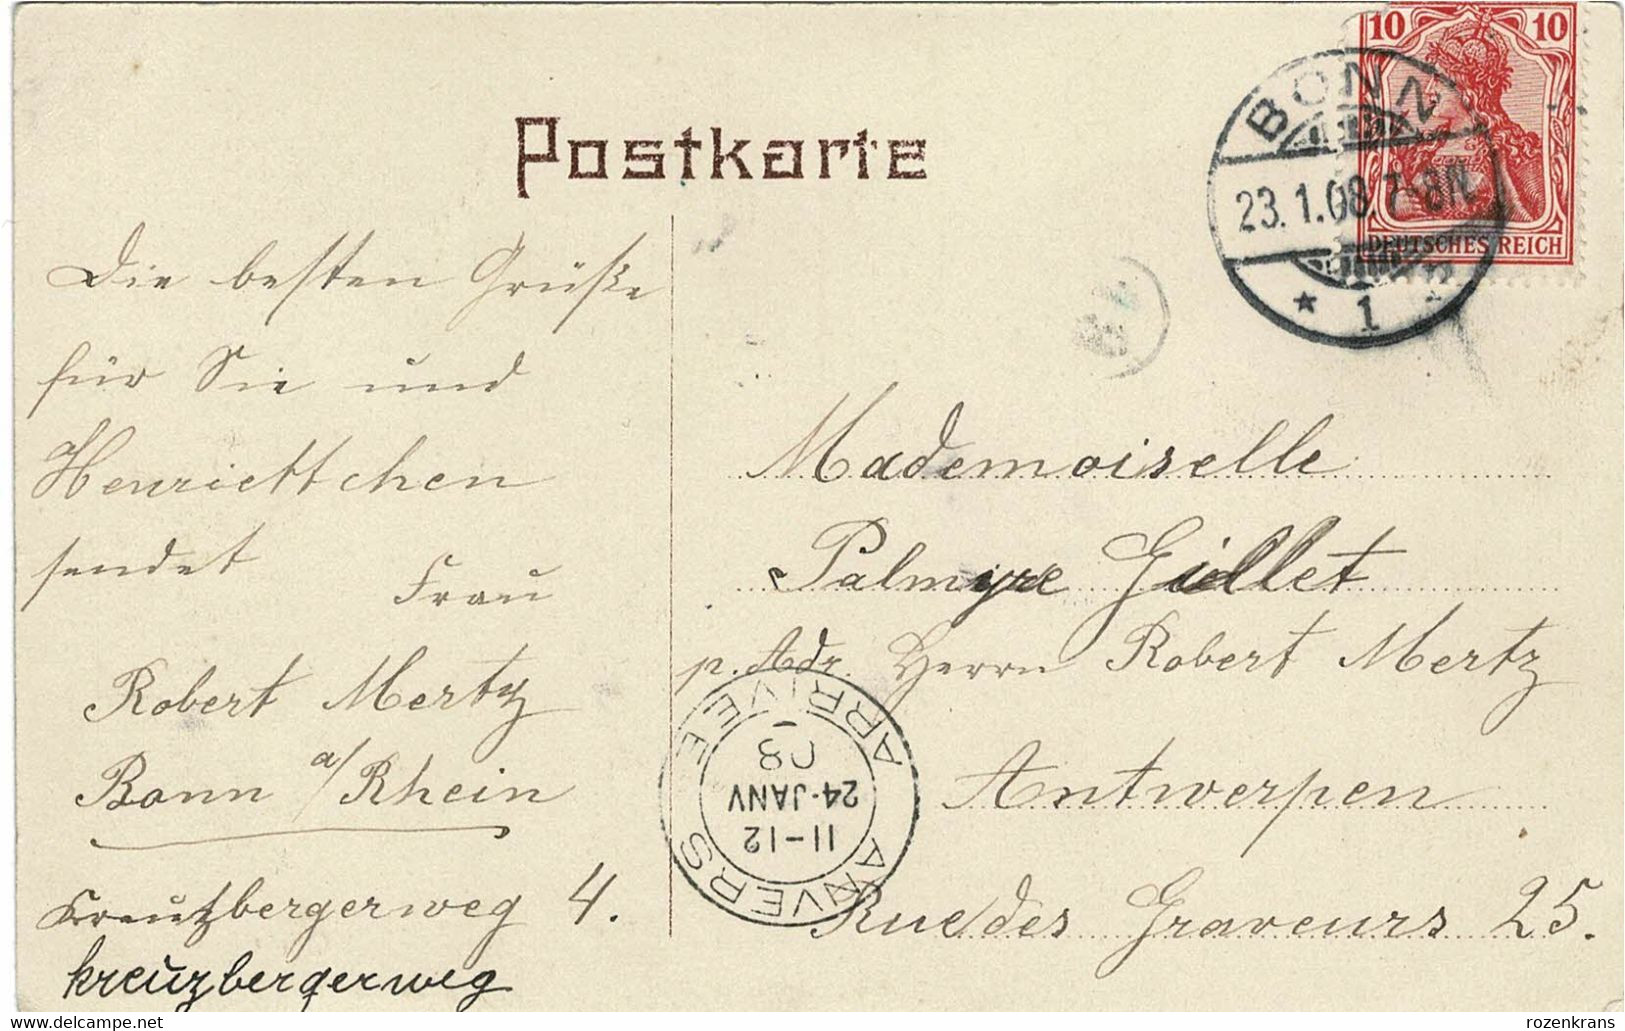 Postkarte
10 10
DEUTSCHES REICH
BONN
23.1.08.7-8N
* 1
Die besten Grüße
für Sie und
Henriettchen
sendet
Frau
Robert Mertz
Bonn a/Rhein
Kreutzbergerweg 4.
kreuzbergerweg
Mademoiselle
Palmyre Gillet
p. Adr. Herrn Robert Mertz
Antwerpen
Rue des Graveurs 25.
ANVERS
11-12
24-JANV
08
ARRIVEE
www.delcampe.net
rozenkrans